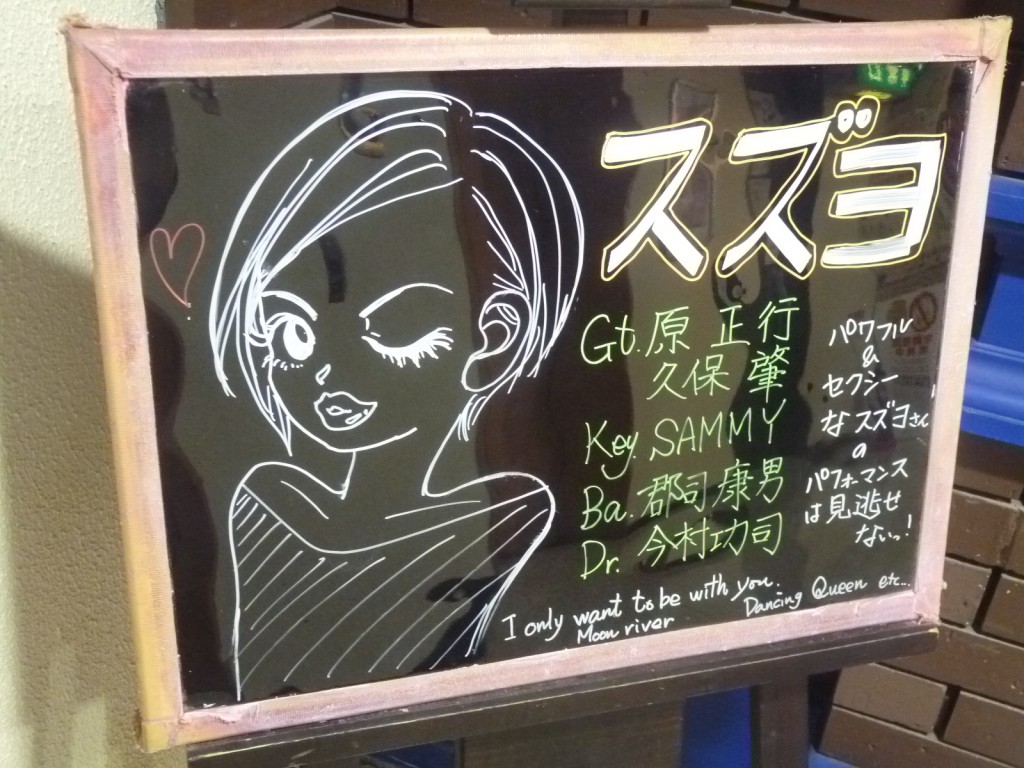 スズヨ
Gt. 原 正行
久保 肇
Key. SAMMY
Ba. 郡司 康男
Dr. 今村功司
パワフル
&
セクシー
なスズヨさん
の
パフォーマンス
は見逃せ
ないっ!
I only want to be with you.
Moon river
Dancing Queen etc...